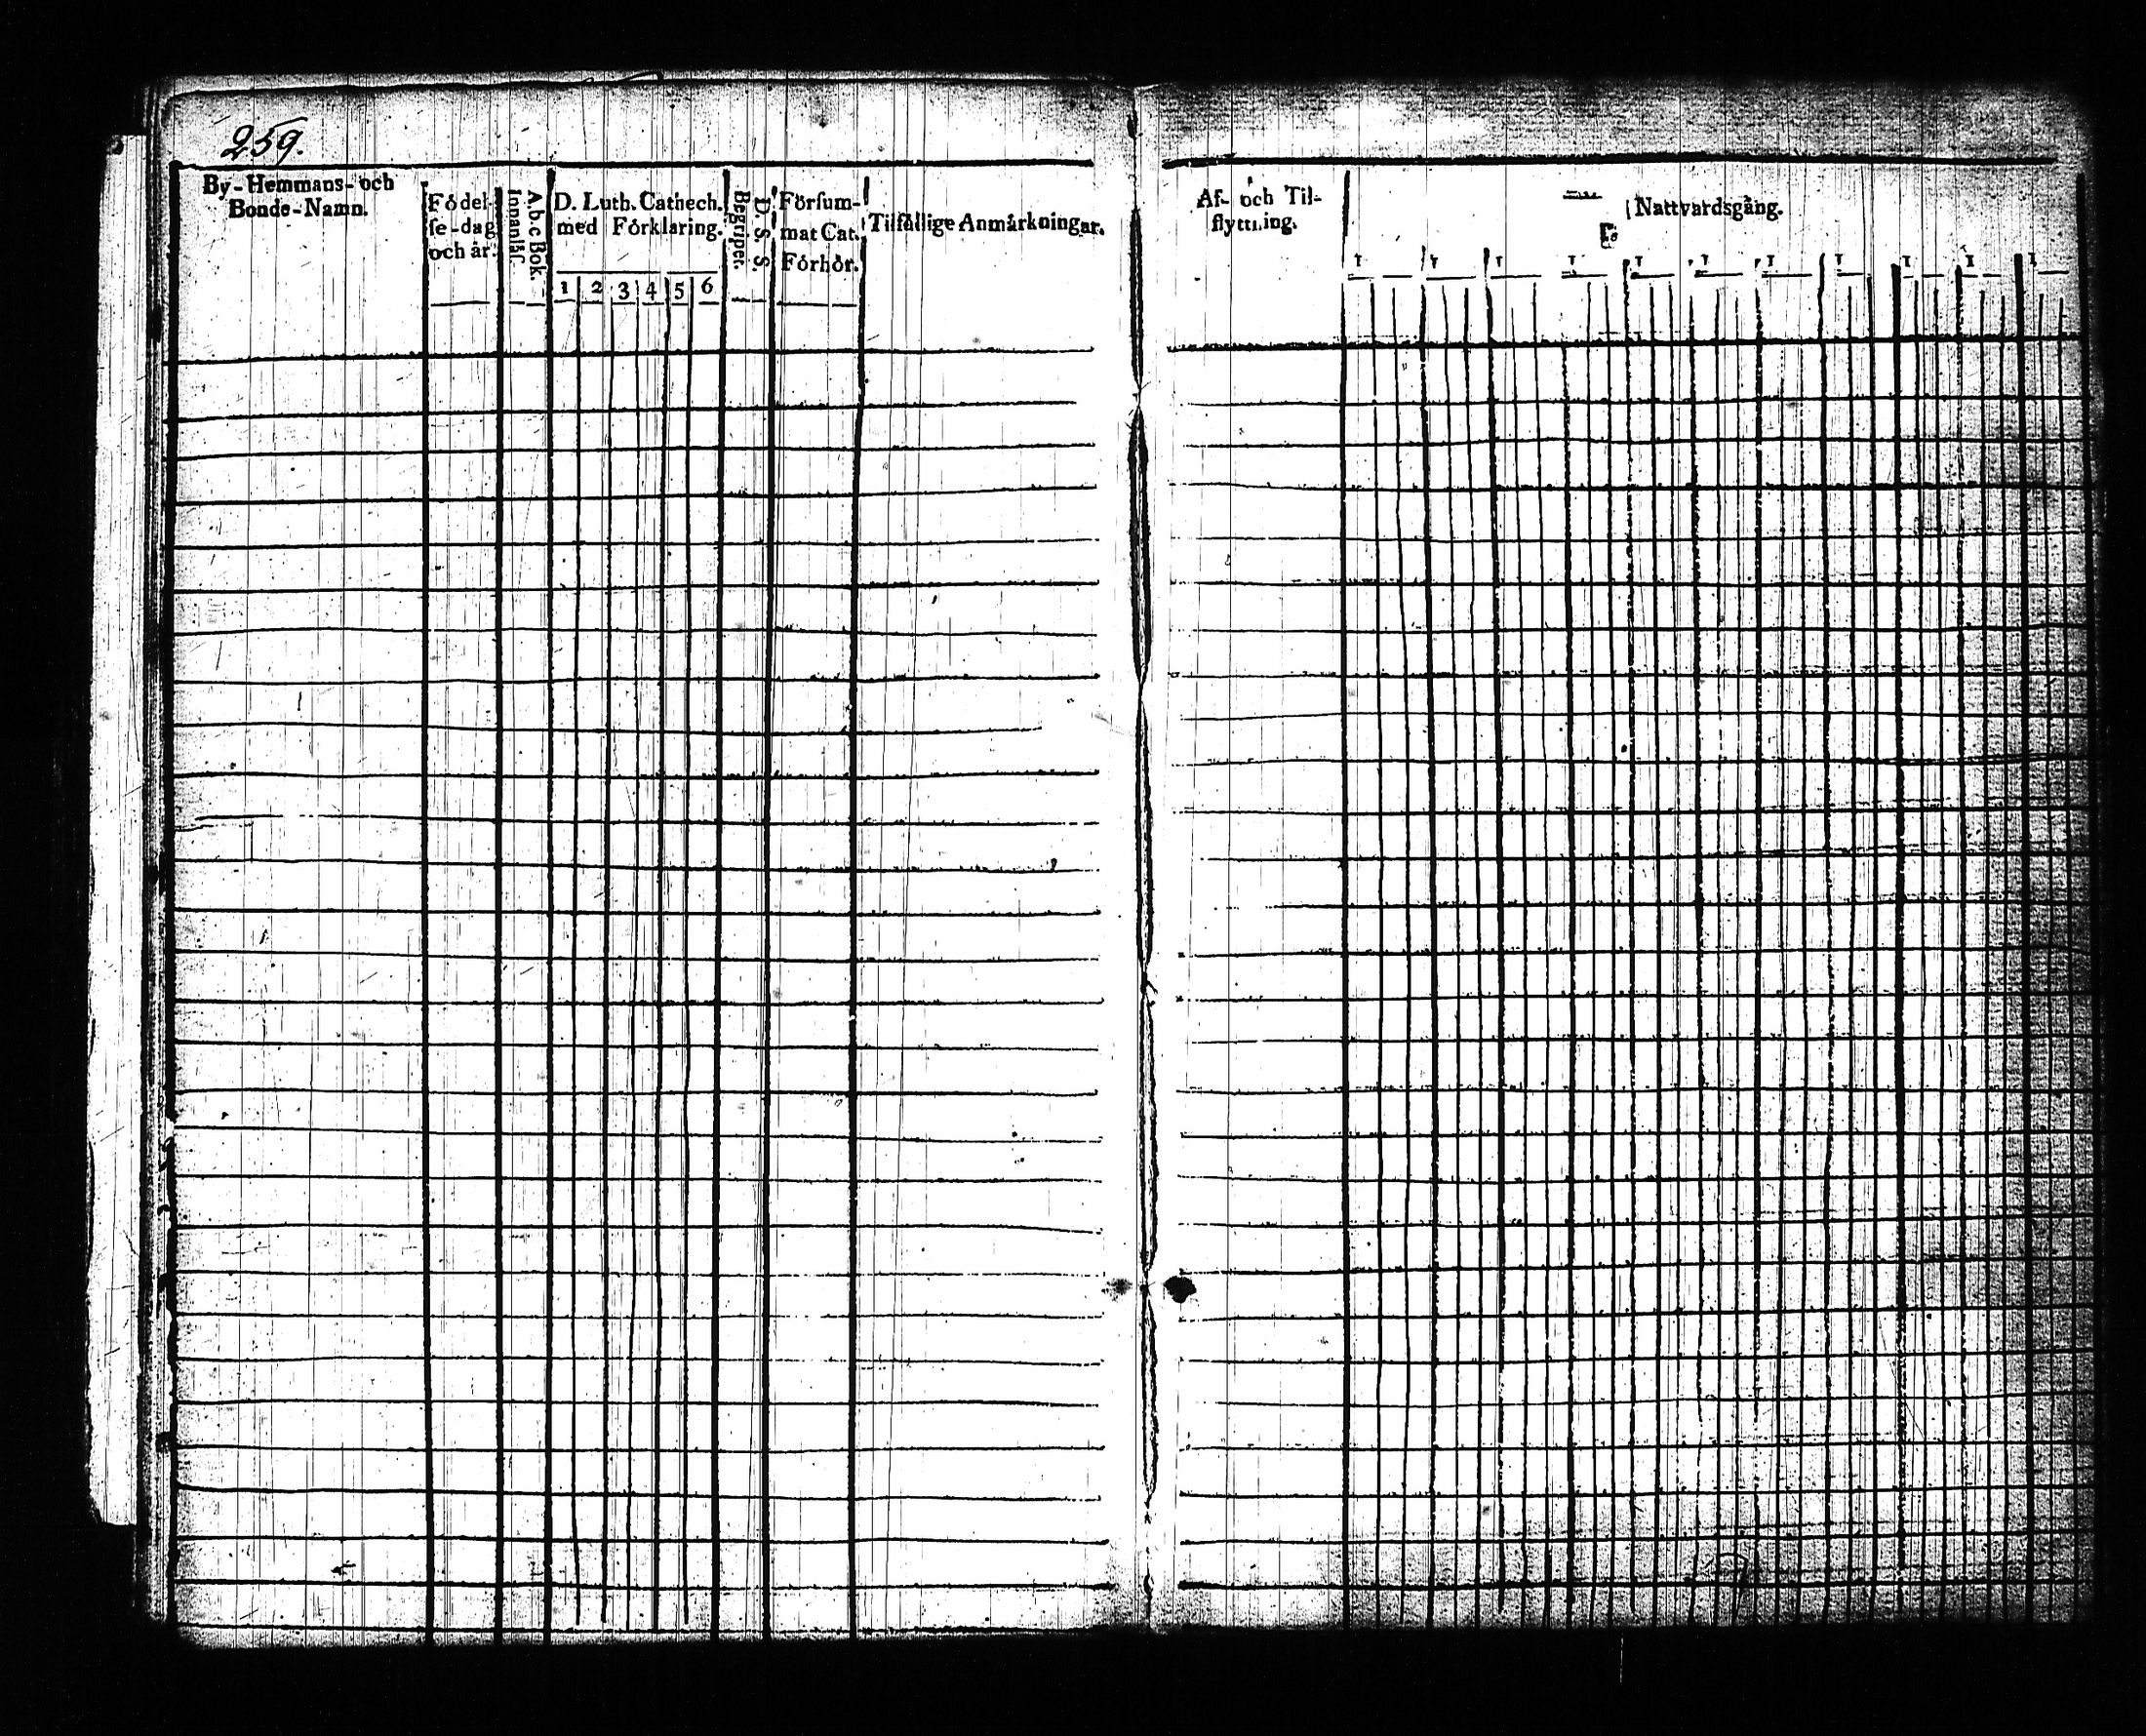 259.
By-Hemmans- och
Bonde-Namn.
Födel-
se-dag
och år.
A.b.c Bok.
Innanläs.
D. Luth. Cathech.
med Förklaring.
1 2 3 4 5 6
D. S. S.
Begriper.
Försum-
mat Cat.
Förhör.
Tilfällige Anmärkningar.
Af- och Til-
flyttning.
Nattvardsgång.